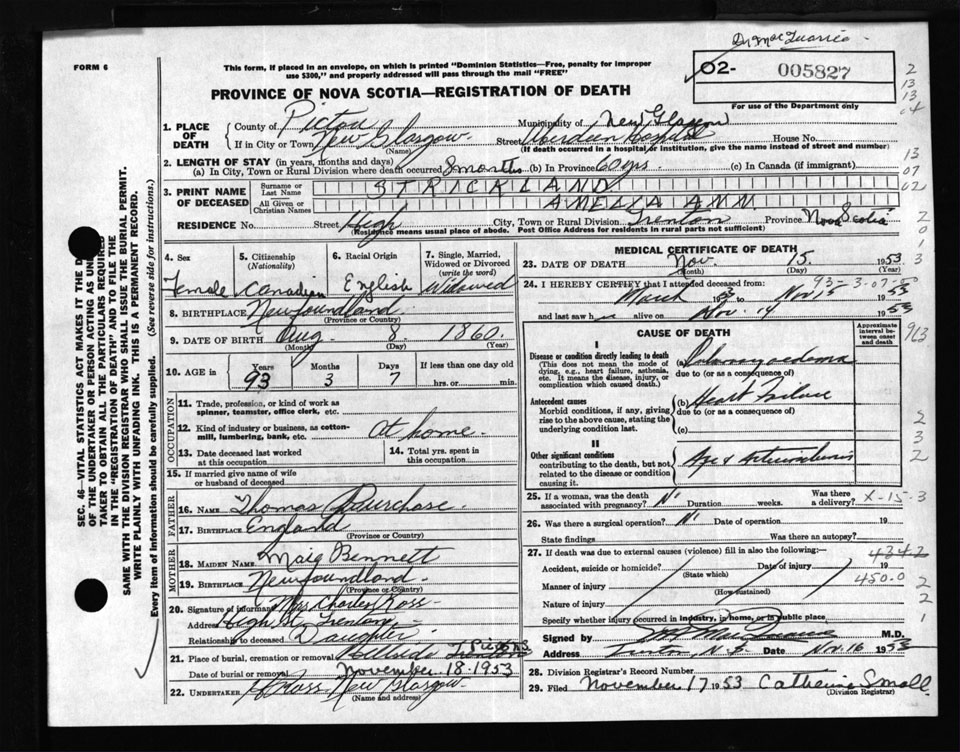 Dr MacQuarrie
FORM 6
This form, if placed in an envelope, on which is printed "Dominion Statistics—Free, penalty for improper
use $300," and properly addressed will pass through the mail "FREE"
02- 005827
PROVINCE OF NOVA SCOTIA—REGISTRATION OF DEATH
For use of the Department only
1. PLACE OF DEATH
County of Pictou Municipality of New Glasgow
If in City or Town New Glasgow Street Aberdeen Hospital House No.
(Name) (If death occurred in a hospital or institution, give the name instead of street and number)
2. LENGTH OF STAY (in years, months and days)
(a) In City, Town or Rural Division where death occurred 8 months (b) In Province 60 yrs. (c) In Canada (if immigrant)
3. PRINT NAME OF DECEASED
Surname or Last Name STRICKLAND
All Given or Christian Names AMELIA ANN
RESIDENCE No. Street High City, Town or Rural Division Trenton Province Nova Scotia
(Residence means usual place of abode. Post Office Address for residents in rural parts not sufficient)
4. Sex Female
5. Citizenship (Nationality) Canadian
6. Racial Origin English
7. Single, Married, Widowed or Divorced (write the word) Widowed
8. BIRTHPLACE Newfoundland
(Province or Country)
9. DATE OF BIRTH Aug. 8 1860
(Month) (Day) (Year)
10. AGE in Years 93 Months 3 Days 7 If less than one day old
hrs. or min.
OCCUPATION
11. Trade, profession, or kind of work as
spinner, teamster, office clerk, etc.
12. Kind of industry or business, as cotton-
mill, lumbering, bank, etc. At home
13. Date deceased last worked
at this occupation
14. Total yrs. spent in
this occupation
15. If married give name of wife
or husband of deceased
FATHER
16. NAME Thomas Purchase
17. BIRTHPLACE England
(Province or Country)
MOTHER
18. MAIDEN NAME Bennett
19. BIRTHPLACE Newfoundland
(Province or Country)
20. Signature of informant Mrs Charles Ross
Address High St, Trenton
Relationship to deceased Daughter
21. Place of burial, cremation or removal Hillside
Date of burial or removal November 18. 1953
22. UNDERTAKER New Glasgow
(Name and address)
MEDICAL CERTIFICATE OF DEATH
23. DATE OF DEATH Nov. 15. 1953
(Month) (Day) (Year)
24. I HEREBY CERTIFY that I attended deceased from:
March 1953 to Nov 15 1953
and last saw her alive on Nov. 14 1953
CAUSE OF DEATH
Approximate interval between onset and death
I
Disease or condition directly leading to death
(This does not mean the mode of
dying, e.g., heart failure, asthenia,
etc. It means the disease, injury, or
complication which caused death.)
(a) Pulmonary oedema
due to (or as a consequence of)
Antecedent causes
Morbid conditions, if any, giving
rise to the above cause, stating the
underlying condition last.
(b) Heart Failure
due to (or as a consequence of)
(c)
II
Other significant conditions
contributing to the death, but not
related to the disease or condition
causing it.
Age &
25. If a woman, was the death
associated with pregnancy? No Duration weeks. Was there
a delivery?
X-15-3
26. Was there a surgical operation? No Date of operation 19
State findings Was there an autopsy?
27. If death was due to external causes (violence) fill in also the following:—
4342
Accident, suicide or homicide? Date of injury 19
(State which)
450.0
Manner of injury
(How sustained)
Nature of injury
Specify whether injury occurred in industry, in home, or in public place
Signed by M.D.
Address Trenton, N.S. Date Nov. 16 1953
28. Division Registrar's Record Number
29. Filed November 17 1953 Catherine Small
(Division Registrar)
SEC. 46—VITAL STATISTICS ACT MAKES IT THE
OF THE UNDERTAKER OR PERSON ACTING AS
TAKER TO OBTAIN ALL THE PARTICULARS REQUIRED
IN THE "REGISTRATION OF DEATH" AND TO FILE THE
SAME WITH THE DIVISION REGISTRAR WHO SHALL ISSUE THE BURIAL PERMIT.
WRITE PLAINLY WITH UNFADING INK. THIS IS A PERMANENT RECORD.
Every item of information should be carefully supplied. (See reverse side for instructions.)